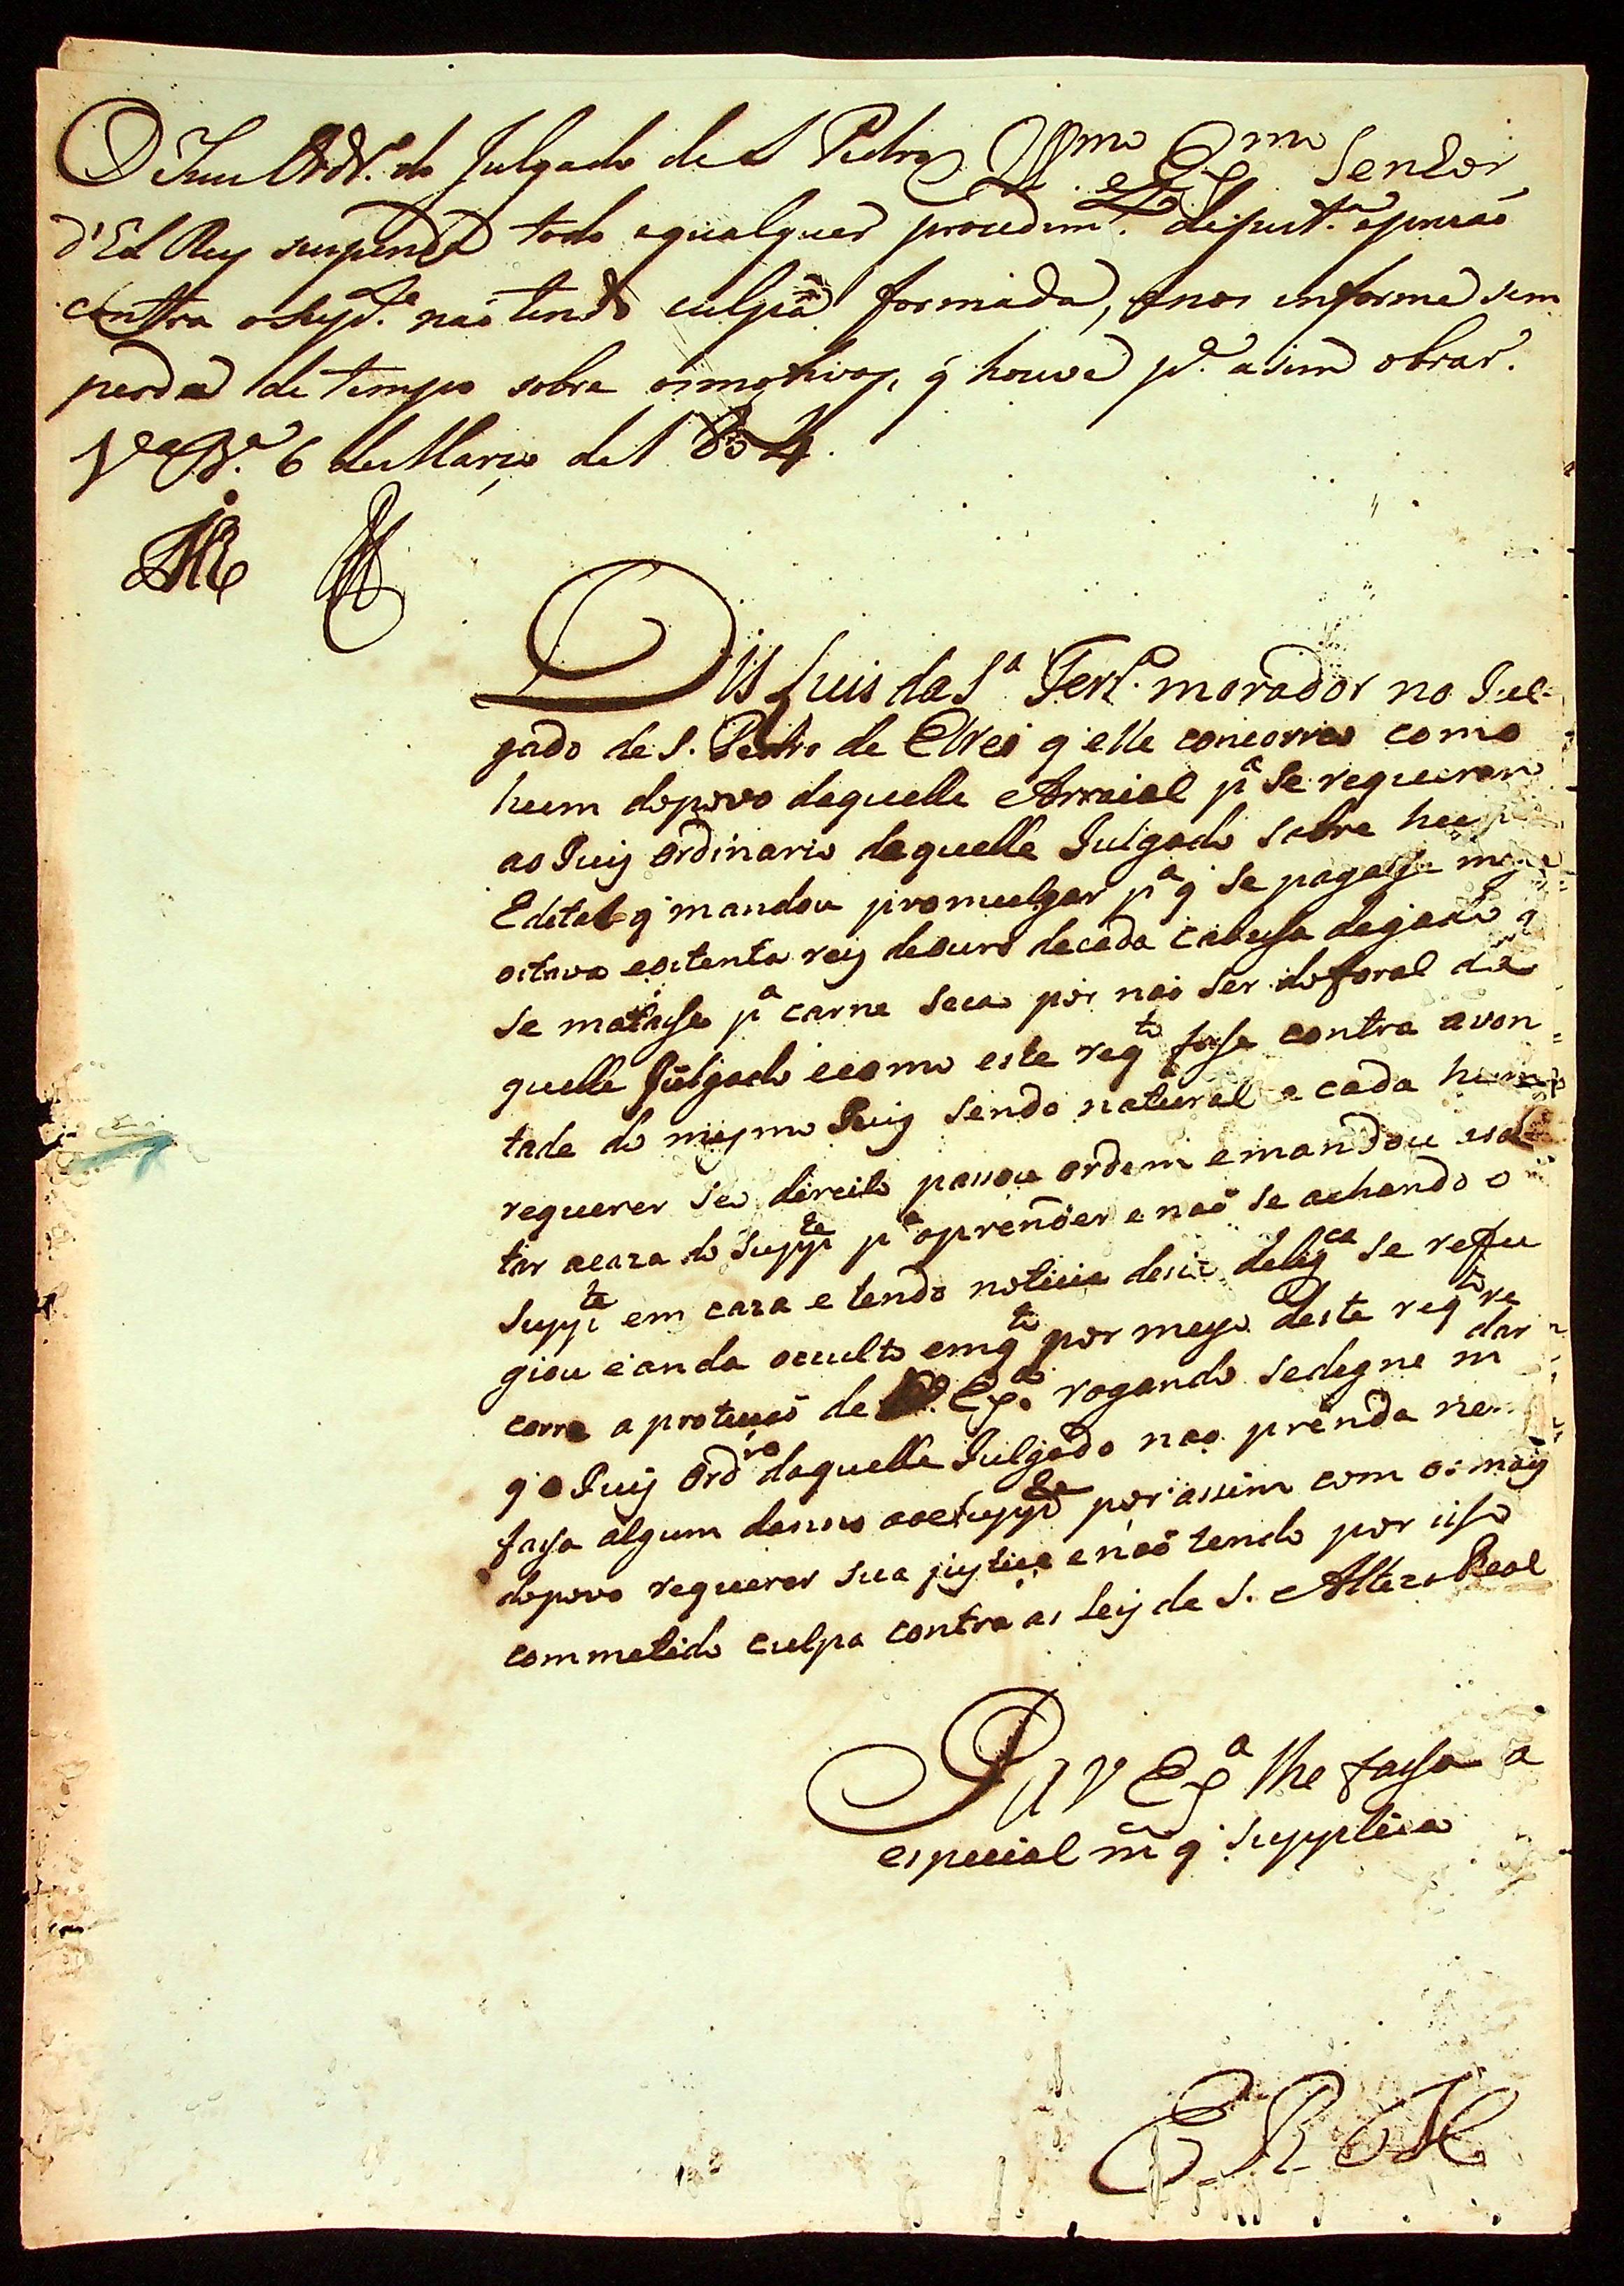 O Juiz Ordr.º do Julgado de S Pedro Illmo e Exmo Senhor
d'El Rey suspenda todo equalquer procedim.to de just.ª eprizaõ
contra o Supp.e naõ tendo culpa formada, enos informe sem
perda de tempo sobre os motivos, q̃ houve p.ª asim obrar.
Vª Bª 6 de Março de 1804.
Dis Luis da Sª Ferrª morador no Jul-
gado de S. Pedro de ElRei q' elle concorreo como
hum dopovo daquelle Arraial pª se requerer
ao Juiz ordinario daquelle Julgado sobre hum
Edetal q' mandou promulgar pª q' se pagasse meya
oitava eoitenta reis deouro decada cabessa degado q
se matasse pª carne seca por naõ ser doforal da
quelle Julgado ecomo este reqto fosse contra avon
tade do mesmo Juiz sendo natural a cada hum
requerer seo direito passou ordem emandou escol
tar acaza do Suppte pª oprender e naõ se achando o
Suppte em caza e tendo noticia desta deligca se reffu
giou e anda occulto emqto por meyo deste reqto re
corre a proteçaõ de V. Exª rogando sedegne mdar
q' o Juiz Ordro daquelle Julgado nao prenda nem
fassa algum danno aoSuppte por assim com os mais
dopovo requerer sua justiça enaõ tendo por isso
commetido culpa contra as Leis de S. Alteza Real
P a V Exª lhe fassa a
especial m̃ q' supplica
E R M